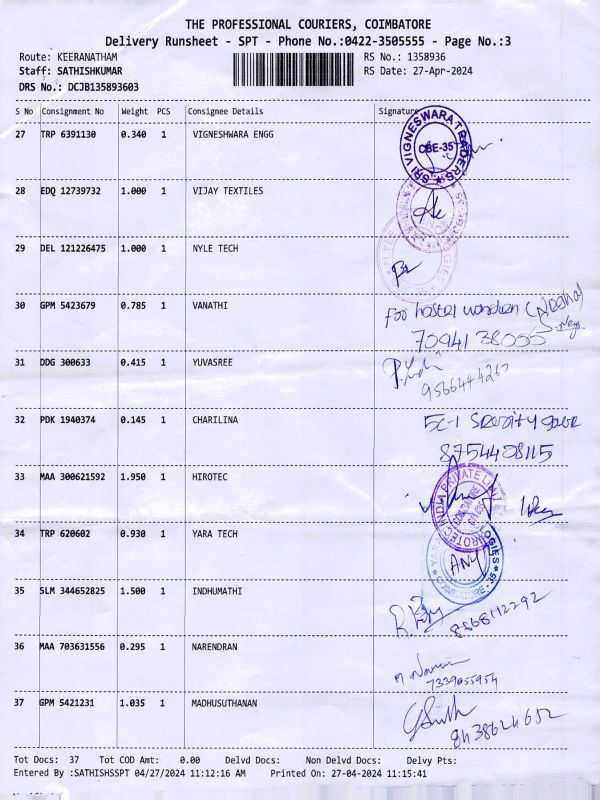 THE PROFESSIONAL COURIERS, COIMBATORE
Delivery Runsheet - SPT - Phone No.:0422-3505555 - Page No.:3
Route: KEERANATHAM RS No.: 1358936
Staff: SATHISHKUMAR RS Date: 27-Apr-2024
DRS No.: DCJB135893603
S No Consignment No Weight PCS Consignee Details Signature
27 TRP 6391130 0.340 1 VIGNESHWARA ENGG
SRI VIGNESWARA TRADERS CBE-35
28 EDQ 12739732 1.000 1 VIJAY TEXTILES
29 DEL 121226475 1.000 1 NYLE TECH
30 GPM 5423679 0.785 1 VANATHI
For hostel warden
31 DDG 300633 0.415 1 YUVASREE
32 PDK 1940374 0.145 1 CHARILINA
8754408115
33 MAA 300621592 1.950 1 HIROTEC
HIROTEC INDIA PRIVATE LIMITED
34 TRP 620602 0.930 1 YARA TECH
COIMBATORE-35
35 SLM 344652825 1.500 1 INDHUMATHI
36 MAA 703631556 0.295 1 NARENDRAN
7339055954
37 GPM 5421231 1.035 1 MADHUSUTHANAN
Tot Docs: 37 Tot COD Amt: 0.00 Delvd Docs: Non Delvd Docs: Delvy Pts:
Entered By :SATHISHSSPT 04/27/2024 11:12:16 AM Printed On: 27-04-2024 11:15:41